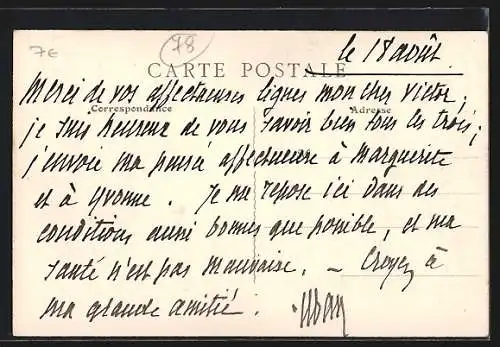 7E
78
le 18 août
CARTE POSTALE
Merci de vos affectueuses lignes mon cher Victor,
Correspondance
Adresse
je suis heureux de vous savoir bien tous les trois ;
j'envoie ma pensée affectueuse à Marguerite
et à Yvonne. Je me repose ici dans des
conditions aussi bonnes que possible, et ma
santé n'est pas mauvaise. — Croyez à
ma grande amitié.